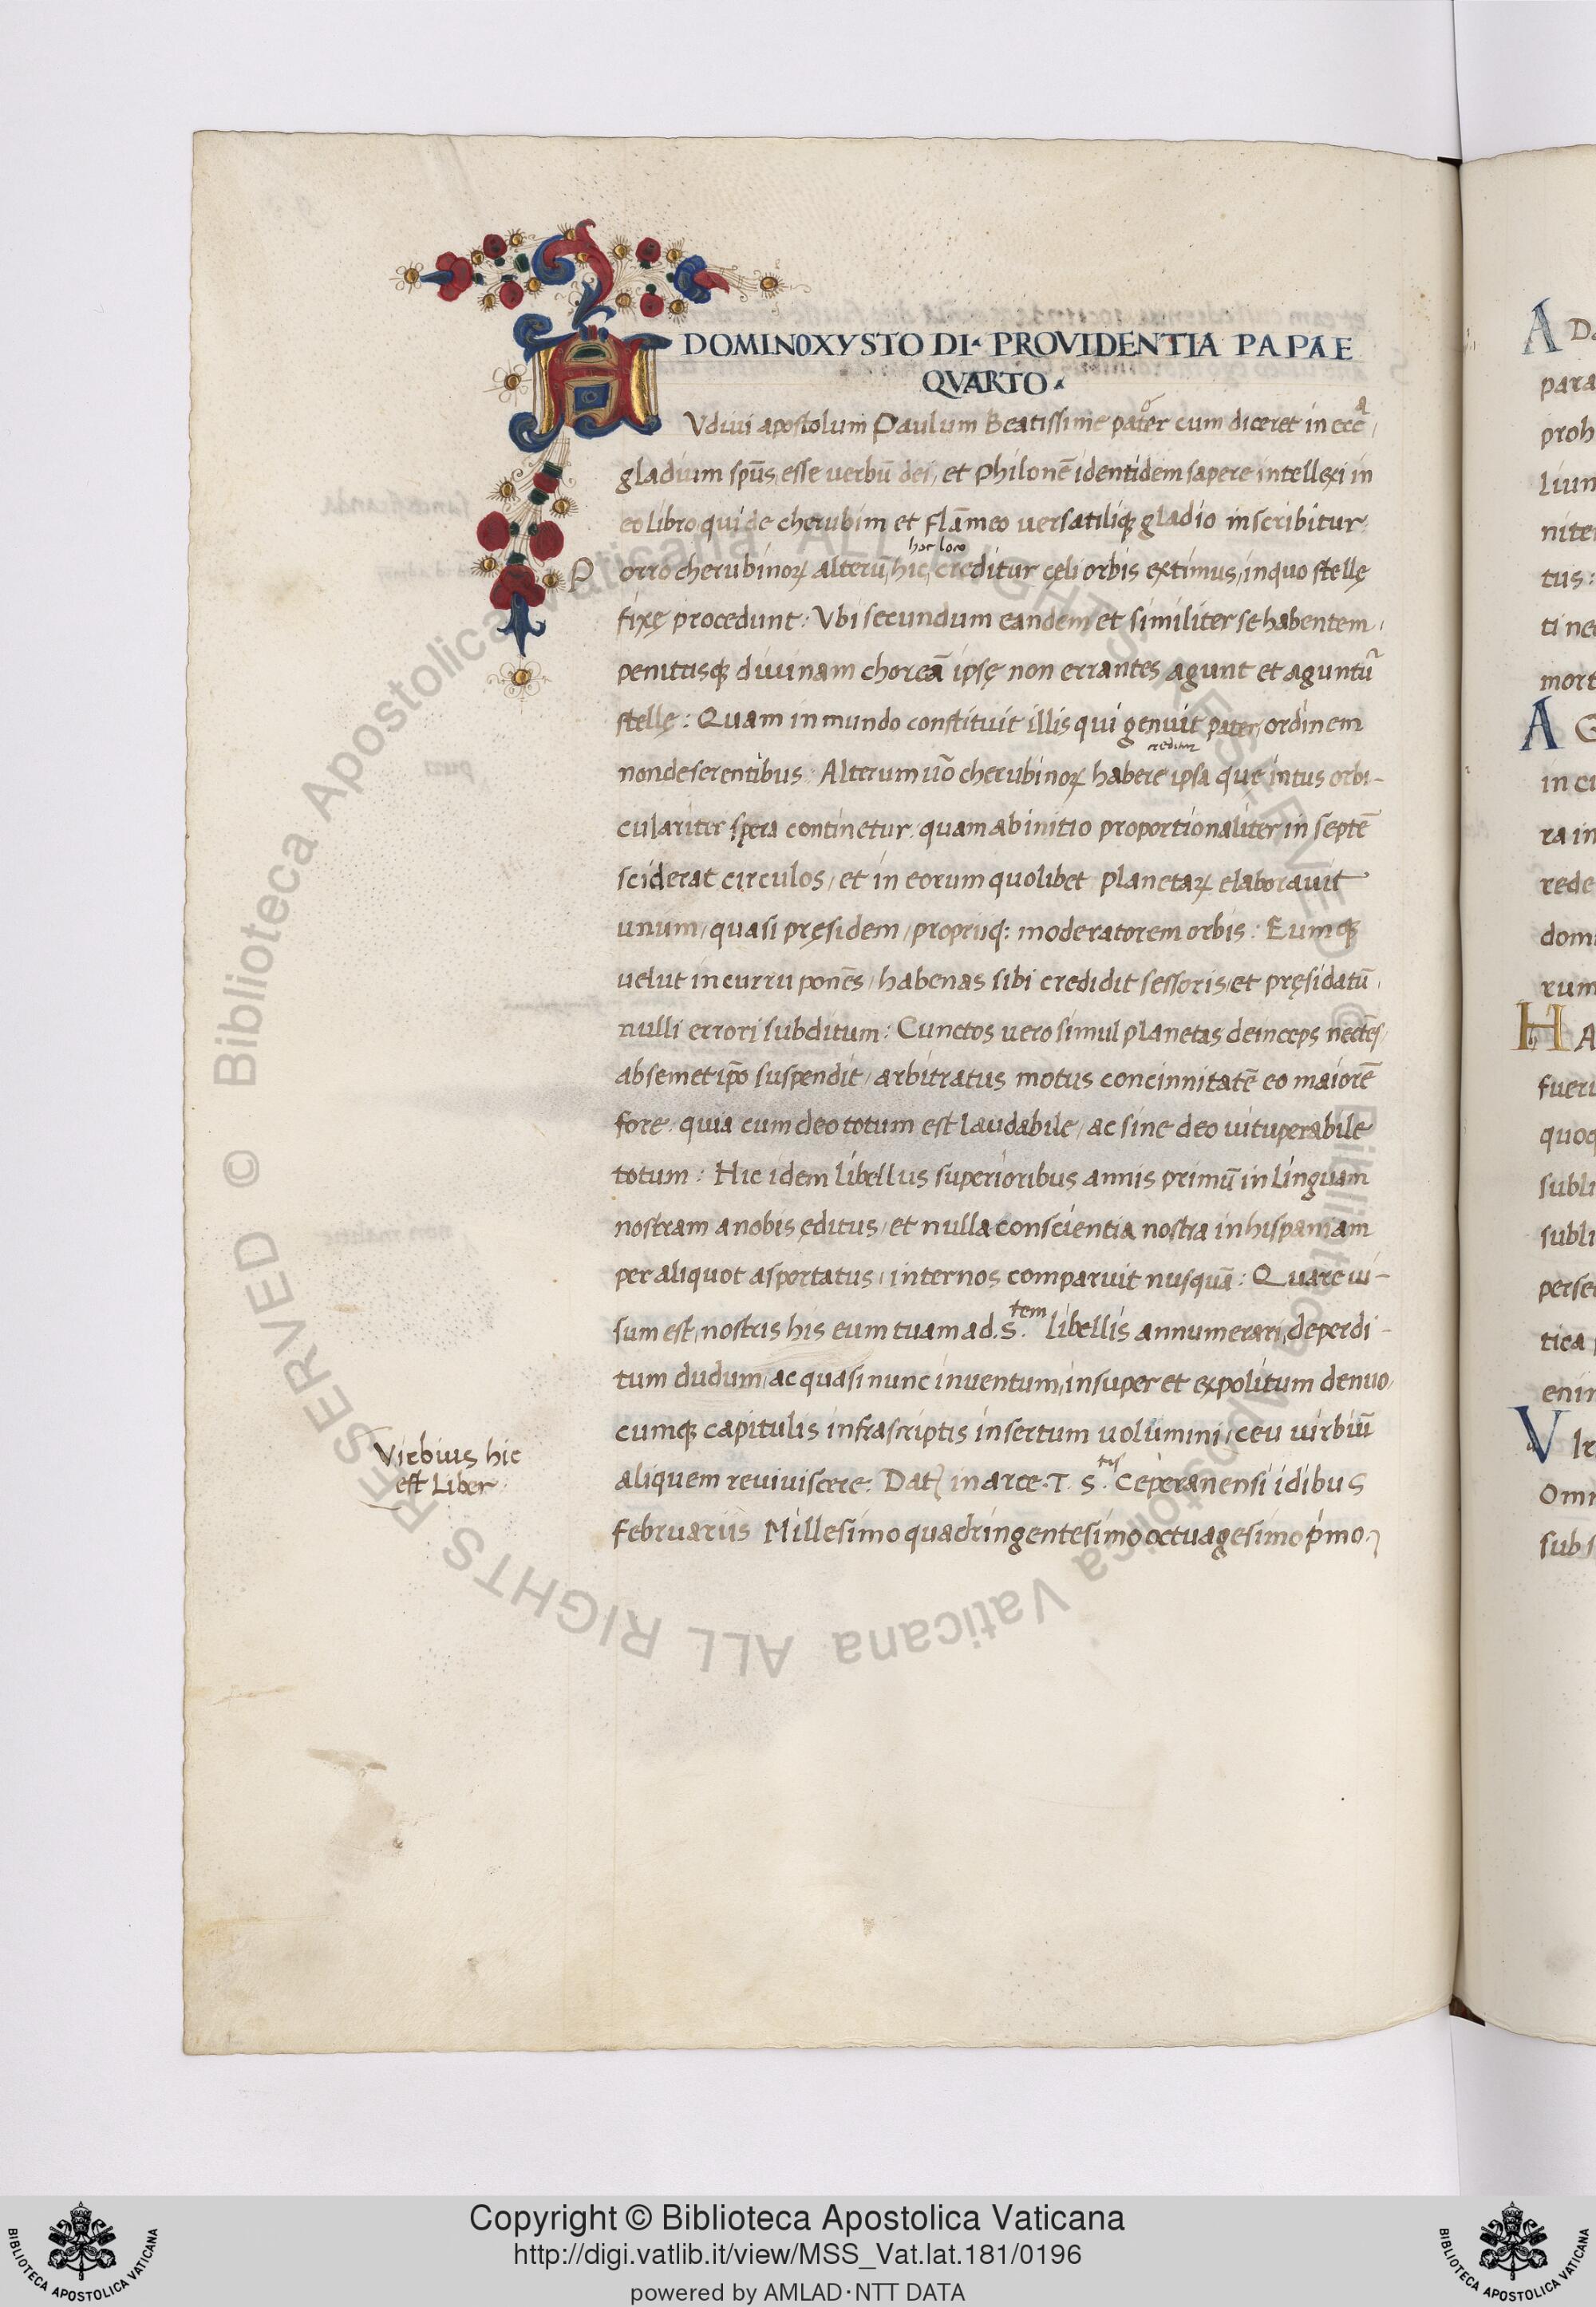 DOMINO XYSTO DI· PROVIDENTIA PAPAE
QVARTO·
AVdiui apostolum Paulum Beatissime pater cum diceret in eccᵃ,
gladium spūs, esse verbū dei, et Philonē identidem sapere intellexi in
eo libro, qui de cherubim et flāmeo versatiliqꝫ gladio inscribitur.
hoc loco
Porro cherubinoꝝ alterū, hic, creditur cęli orbis extimus, in quo stellę
fixę procedunt: Vbi secundum eandem et similiter se habentem,
penitusqꝫ diuinam choreā ipsę non errantes agunt et aguntur̃
stellę: Quam in mundo constituit illis qui genuit pater, ordinem
credimꝰ
non deserentibus: Alterum uo᷑ cherubinoꝝ habere ipsa que intus orbi-
culariter spera continetur, quam ab initio proportionaliter in septē
sciderat circulos, et in eorum quolibet planetaꝝ elaborauit
unum, quasi pręsidem, propriiqꝫ: moderatorem orbis: Eumqꝫ
uelut in curru ponēs, habenas sibi credidit sessoris, et pręsidatū,
nulli errori subditum: Cunctos vero simul planetas deinceps nectēs,
ab semet ip̄o suspendit, arbitratus motus concinnitatē eo maiorē
fore: quia cum deo totum est laudabile, ac sine deo uituperabile
totum: Hic idem libellus superioribus annis primū in linguam
nostram a nobis ęditus, et nulla conscientia nostra in hispaniam
per aliquot asportatus, inter nos comparuit nusquā: Quare ui-
sum est, nostris his eum tuam ad .S.ᵗᵉᵐ libellis annumerari, deperdi-
tum dudum, ac quasi nunc inventum, insuper et expolitum denuo,
cumqꝫ capitulis infrascriptis insertum uolumini, ceu uirbiū
aliquem reuiviscere: Dat̃ in arce .T. S.ᵗⁱˢ Ceperanensi idibus
februariis Millesimo quadringentesimo octuagesimo p̃mo.
Virbius hic
est Liber
© Biblioteca Apostolica Vaticana ALL RIGHTS RESERVED
© Biblioteca Apostolica Vaticana ALL RIGHTS RESERVED
A D
para
proh
lium
nite
tus:
tine
mort
A G
in ci
ra in
rede
dom
rum
H A
fueri
quoq
subli
subli
perse
tica
enim
V Ir
Omn
sub s
BIBLIOTECA APOSTOLICA VATICANA
Copyright © Biblioteca Apostolica Vaticana
http://digi.vatlib.it/view/MSS_Vat.lat.181/0196
powered by AMLAD·NTT DATA
BIBLIOTECA APOSTOLICA VATICANA